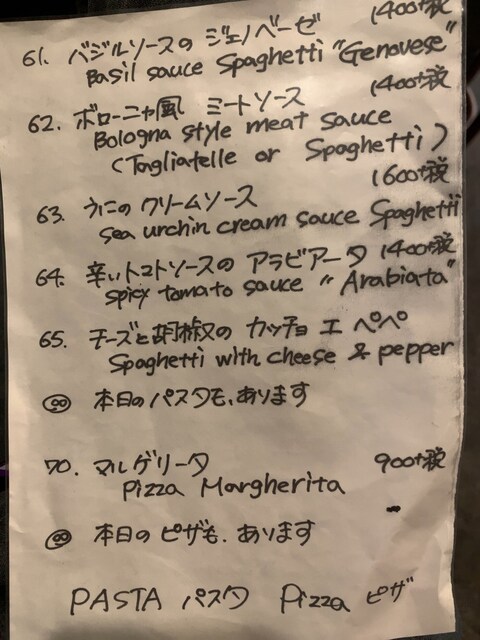 1400+税
61. バジルソースの ジェノベーゼ
Basil sauce Spaghetti "Genovese"
1400+税
62. ボローニャ風 ミートソース
Bologna style meat sauce
(Tagliatelle or Spaghetti)
1600+税
63. うにのクリームソース
sea urchin cream sauce Spaghetti
64. 辛いトマトソースの アラビアータ 1400+税
spicy tomato sauce "Arabiata"
65. チーズと胡椒の カッチョ エ ペペ
Spaghetti with cheese & pepper
本日のパスタも、あります
70. マルゲリータ 900+税
Pizza Margherita
本日の ピザも、あります
PASTA パスタ Pizza ピザ